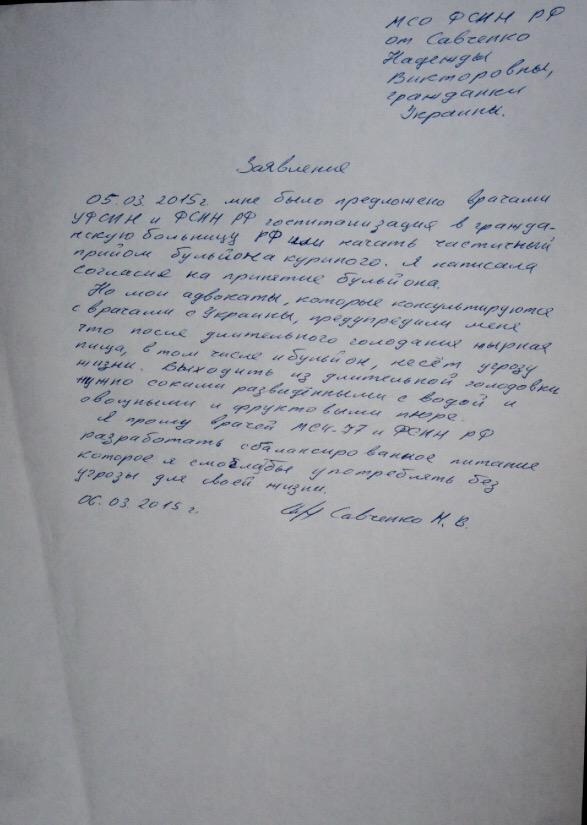 МСО ФСИН РФ
от Савченко
Надежды
Викторовны,
гражданки
Украины.
Заявление
05.03.2015г. мне было предложено врачами
УФСИН и ФСИН РФ госпитализация в гражда-
нскую больницу РФ или начать частисный
прийом бульйона куриного. Я написала
согласие на принятие бульйона.
Но мои адвокаты, которые консультируются
с врачами с Украины, предупредили меня
что после длительного голодания жырная
пища, в том числе и бульйон, несёт угрозу
жизни. Выходить из длительной голодовки
нужно соками разведёнными с водой и
овощными и фруктовыми пюре.
Я прошу врачей МСЧ-77 и ФСИН РФ
разработать сбалансированное питание
которое я смоглабы употреблять без
угрозы для моей жизни.
06.03.2015г. Савченко Н.В.